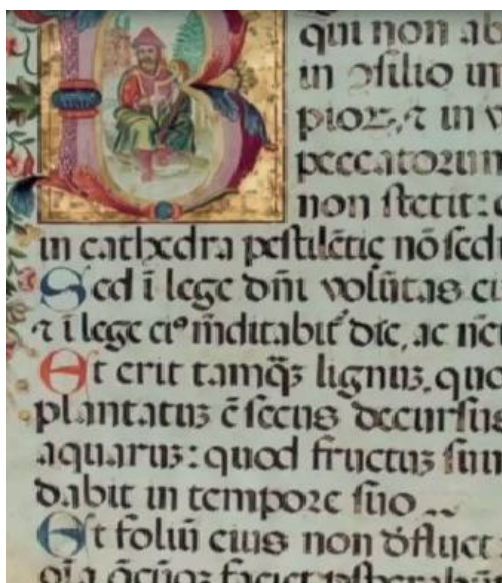 B
qui non ab
in ꝯsilio im
pioꝝ, ⁊ in v
peccatorum
non stetit:
in cathedra pestilẽtie nõ sedi
Sed ĩ lege dñi volũtas ei
⁊ ĩ lege ei⁹ mẽditabit͛ die, ac
Et erit tamq̃ȝ lignuȝ, quo
plantatuȝ ẽ secus decursus
aquaruȝ: quod fructuȝ suu
dabit in tempore suo
Et foliũ eius non ꝺ̃fluet: